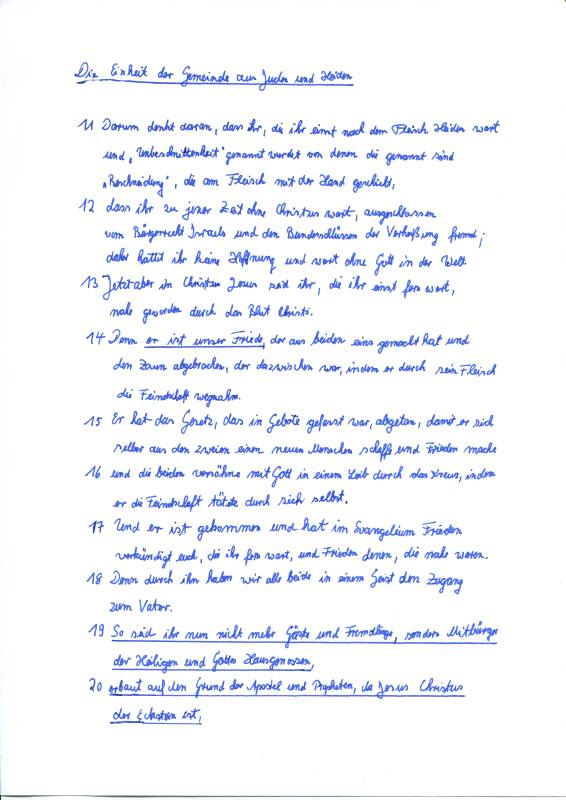 Die Einheit der Gemeinde aus Juden und Heiden
11 Darum denkt daran, dass ihr, die ihr einst nach dem Fleisch Heiden wart
und „Unbeschnittenheit" genannt wurdet von denen die genannt sind
„Beschneidung", die am Fleisch mit der Hand geschieht,
12 dass ihr zu jener Zeit ohne Christus wart, ausgeschlossen
vom Bürgerrecht Israels und den Bundesschlüssen der Verheißung fremd;
daher hattet ihr keine Hoffnung und wart ohne Gott in der Welt
13 Jetzt aber in Christus Jesus seid ihr, die ihr einst fern wart,
nahe geworden durch das Blut Christi.
14 Denn er ist unser Friede, der aus beiden eins gemacht hat und
den Zaun abgebrochen, der dazwischen war, indem er durch sein Fleisch
die Feindschaft wegnahm.
15 Er hat das Gesetz, das in Gebote gefasst war, abgetan, damit er sich
selber aus den zweien einen neuen Menschen schaffe und Frieden mache
16 und die beiden versöhne mit Gott in einem Leib durch das Kreuz, indem
er die Feindschaft tötete durch sich selbst.
17 Und er ist gekommen und hat im Evangelium Frieden
verkündigt euch, die ihr fern wart, und Frieden denen, die nahe waren.
18 Denn durch ihn haben wir alle beide in einem Geist den Zugang
zum Vater.
19 So seid ihr nun nicht mehr Gäste und Fremdlinge, sondern Mitbürger
der Heiligen und Gottes Hausgenossen,
20 erbaut auf den Grund der Apostel und Propheten, da Jesus Christus
der Eckstein ist,